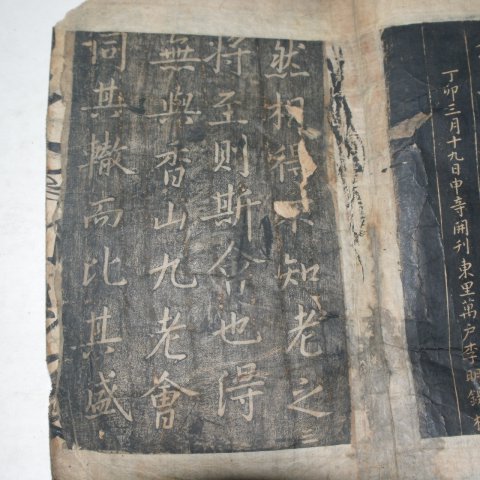 丁卯三月十九日申寺開刊東里萬戶李明
然相得不知老之
將至則斯會也得
無與香山九老會
同其轍而比其盛